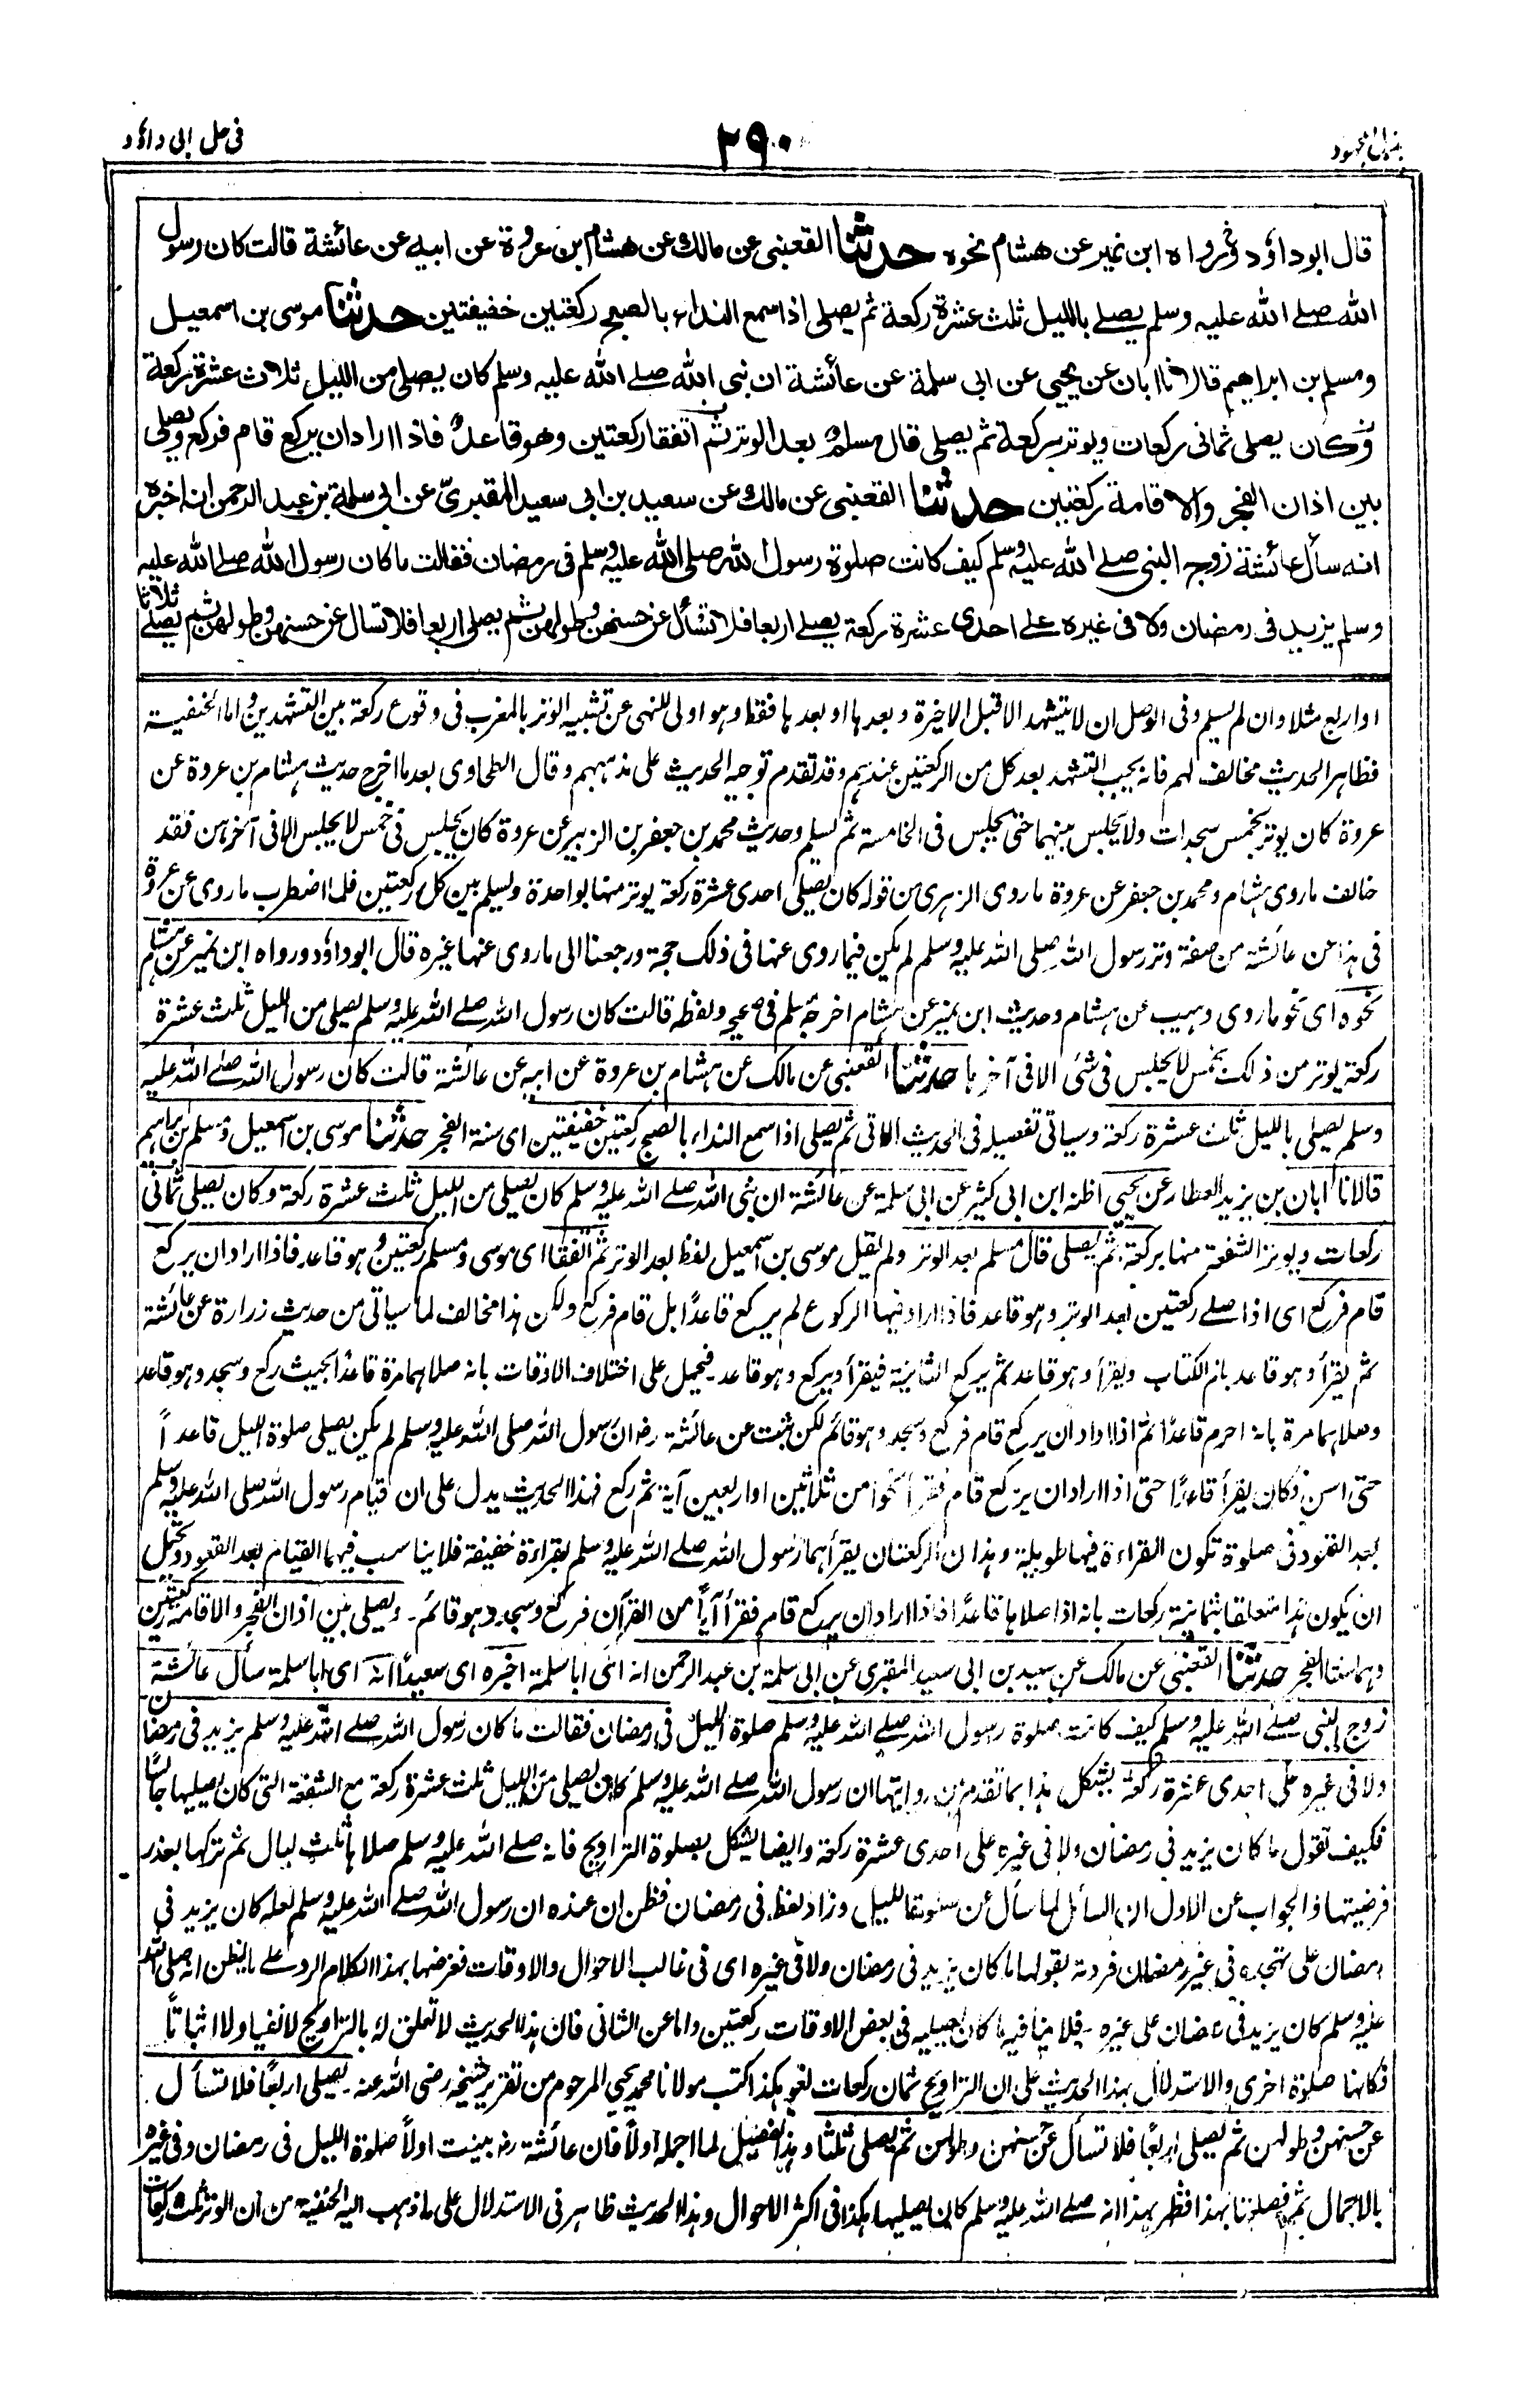 بذل المجهود
٢٩٠
في حل ابى داؤد
قال ابو داؤد ورواه ابن نمير عن هشام نحوه حدثنا القعنبى عن مالك عن هشام بن عروة عن ابيه عن عائشة قالت كان رسول
الله صلے الله عليه وسلم يصلے بالليل ثلث عشرة ركعة ثم يصلى اذا سمع النداء بالصبح ركعتين خفيفتين حدثنا موسى بن اسمعيل
ومسلم بن ابراهيم قالا نا ابان عن يحيى عن ابى سلمة عن عائشة ان نبى الله صلے الله عليه وسلم كان يصلى من الليل ثلاث عشرة ركعة
وكان يصلى ثمانى ركعات ويوتر بركعة ثم يصلى قال مسلم بعد الوتر ثم اتفقا ركعتين وهو قاعد فاذا اراد ان يركع قام فركع ويصلى
بين اذان الفجر والاقامة ركعتين حدثنا القعنبى عن مالك عن سعيد بن ابى سعيد المقبرى عن ابى سلمة بن عبد الرحمن انه اخبره
انه سأل عائشة زوج النبى صلے الله عليه وسلم كيف كانت صلوة رسول الله صلى الله عليه وسلم فى رمضان فقالت ما كان رسول الله صلے الله عليه
وسلم يزيد فى رمضان ولا فى غيره علے احدى عشرة ركعة يصلے اربعا فلا تسأل عن حسنهن وطولهن ثم يصلى اربعا فلا تسال عن حسنهن وطولهن ثم يصلے ثلاثا
او اربع مثلا وان لم يسلم وفى الوصل ان لا يتشهد الا قبل الاخيرة وبعدها او بعدها فقط وهو اولى للنهى عن تشبيه الوتر بالمغرب فى وقوع ركعة بين التشهدين واما الحنفية
فظاهر الحديث مخالف لهم فانه يجب التشهد بعد كل من الركعتين عندهم وقد تقدم توجيه الحديث على مذهبهم وقال الطحاوى بعد ما اخرج حديث هشام بن عروة عن
عروة كان يوتر بخمس سجدات ولا يجلس بينهما حتى يجلس فى الخامسة ثم يسلم وحديث محمد بن جعفر بن الزبير عن عروة كان يجلس فى خمس لا يجلس الا فى آخرهن فقد
خالف ما روى هشام ومحمد بن جعفر عن عروة ما روى الزهرى من قوله كان يصلى احدى عشرة ركعة يوتر منها بواحدة ويسلم بين كل ركعتين فلما اضطرب ما روى عن عروة
فى هذا عن عائشة من صفة وتر رسول الله صلى الله عليه وسلم لم يكن فيما روى عنها فى ذلك حجة ورجعنا الى ما روى عنها غيره قال ابو داؤد ورواه ابن نمير عن هشام
نحوه اى نحو ما روى وهيب عن هشام وحديث ابن نمير عن هشام اخرجه مسلم فى صحيحه ولفظه قالت كان رسول الله صلے الله عليه وسلم يصلى من الليل ثلث عشرة
ركعة يوتر من ذلك بخمس لا يجلس فى شئ الا فى آخرها حدثنا القعنبى عن مالك عن هشام بن عروة عن ابيه عن عائشة قالت كان رسول الله صلے الله عليه
وسلم يصلى بالليل ثلث عشرة ركعة وسياتى تفصيله فى الحديث الآتى ثم يصلى اذا سمع النداء بالصبح ركعتين خفيفتين اى سنة الفجر حدثنا موسى بن اسمعيل ومسلم بن ابراهيم
قالا نا ابان بن يزيد العطار عن يحيى اظنه ابن ابى كثير عن ابى سلمة عن عائشة ان نبى الله صلے الله عليه وسلم كان يصلى من الليل ثلث عشرة ركعة وكان يصلى ثمانى
ركعات ويوتر الشفعة منها بركعة ثم يصلى قال مسلم بعد الوتر ولم يقل موسى بن اسمعيل لفظ بعد الوتر ثم اتفقا اى موسى ومسلم ركعتين وهو قاعد فاذا اراد ان يركع
قام فركع اى اذا صلے ركعتين بعد الوتر وهو قاعد فاذا اراد فيها الركوع لم يركع قاعدًا بل قام فركع ولكن هذا مخالف لما سياتى من حديث زرارة عن عائشة
ثم يقرأ وهو قاعد بام الكتاب ويقرأ وهو قاعد ثم يركع الثانية فيقرأ ويركع وهو قاعد۔ فيحمل على اختلاف الاوقات بانه صلاهما مرة قاعدًا بحيث ركع وسجد وهو قاعد
وصلاهما مرة بانه احرم قاعدًا ثم اذا اراد ان يركع قام فركع وسجد وهو قائم لكن ثبت عن عائشة رض ان رسول الله صلى الله عليه وسلم لم يكن يصلى صلوة الليل قاعدًا
حتى اسن فكان يقرأ قاعدًا حتى اذا اراد ان يركع قام فقرأ نحوا من ثلاثين او اربعين آية ثم ركع فهذا الحديث يدل على ان قيام رسول الله صلى الله عليه وسلم
بعد القعود فى صلوة تكون القراءة فيها طويلة وهذان الركعتان يقرأهما رسول الله صلے الله عليه وسلم بقراءة خفيفة فلا يناسب فيهما القيام بعد القعود ويحتمل
ان يكون هذا متعلقا بثمانية ركعات بانه اذا صلاها قاعدًا فاذا اراد ان يركع قام فقرأ آيًا من القرآن فركع وسجد وهو قائم۔ ويصلى بين اذان الفجر والاقامة ركعتين
وهما سنتا الفجر حدثنا القعنبى عن مالك عن سعيد بن ابى سعيد المقبرى عن ابى سلمة بن عبد الرحمن انه اى ابا سلمة اخبره اى سعيدًا انه اى ابا سلمة سأل عائشة
زوج النبى صلے الله عليه وسلم كيف كانت صلوة رسول الله صلے الله عليه وسلم صلوة الليل فى رمضان فقالت ما كان رسول الله صلے الله عليه وسلم يزيد فى رمضان
ولا فى غيره على احدى عشرة ركعة يشكل هذا بما تقدم من روايتها ان رسول الله صلے الله عليه وسلم كان يصلى من الليل ثلث عشرة ركعة مع الشفعة التى كان يصليها جالسًا
فكيف تقول ما كان يزيد فى رمضان ولا فى غيره على احدى عشرة ركعة وايضا يشكل بصلوة التراويح فانه صلے الله عليه وسلم صلاها ثلث ليال ثم تركها بعذر
فرضيتها والجواب عن الاول ان السائل لما سأل عن صلوته بالليل وزاد لفظ فى رمضان فظن ان عنده ان رسول الله صلے الله عليه وسلم لعله كان يزيد فى
رمضان على تهجده فى غير رمضان فردته بقولها ما كان يزيد فى رمضان ولا فى غيره اى فى غالب الاحوال والاوقات فغرضها بهذا الكلام الرد علے ما يظن انه صلى الله
عليه وسلم كان يزيد فى رمضان على غيره۔ فلا ينافيه ما كان يصليه فى بعض الاوقات ركعتين واما عن الثانى فان هذا الحديث لا تعلق له بالتراويح لا نفيا ولا اثباتًا
فكانها صلوة اخرى والاستدلال بهذا الحديث على ان التراويح ثمان ركعات لغو هكذا كتب مولانا محمد يحيى المرحوم من تقرير شيخه رضى الله عنه۔ يصلى اربعًا فلا تسأل
عن حسنهن وطولهن ثم يصلى اربعًا فلا تسأل عن حسنهن وطولهن ثم يصلى ثلثا وهذا تفصيل لما اجمله اولًا فان عائشة رض بينت اولًا صلوة الليل فى رمضان وفى غيره
بالاجمال ثم فصلتها بهذا فظهر بهذا انه صلے الله عليه وسلم كان يصليها هكذا فى اكثر الاحوال وهذا الحديث ظاهر فى الاستدلال على ما ذهب اليه الحنفية من ان الوتر ثلث ركعات